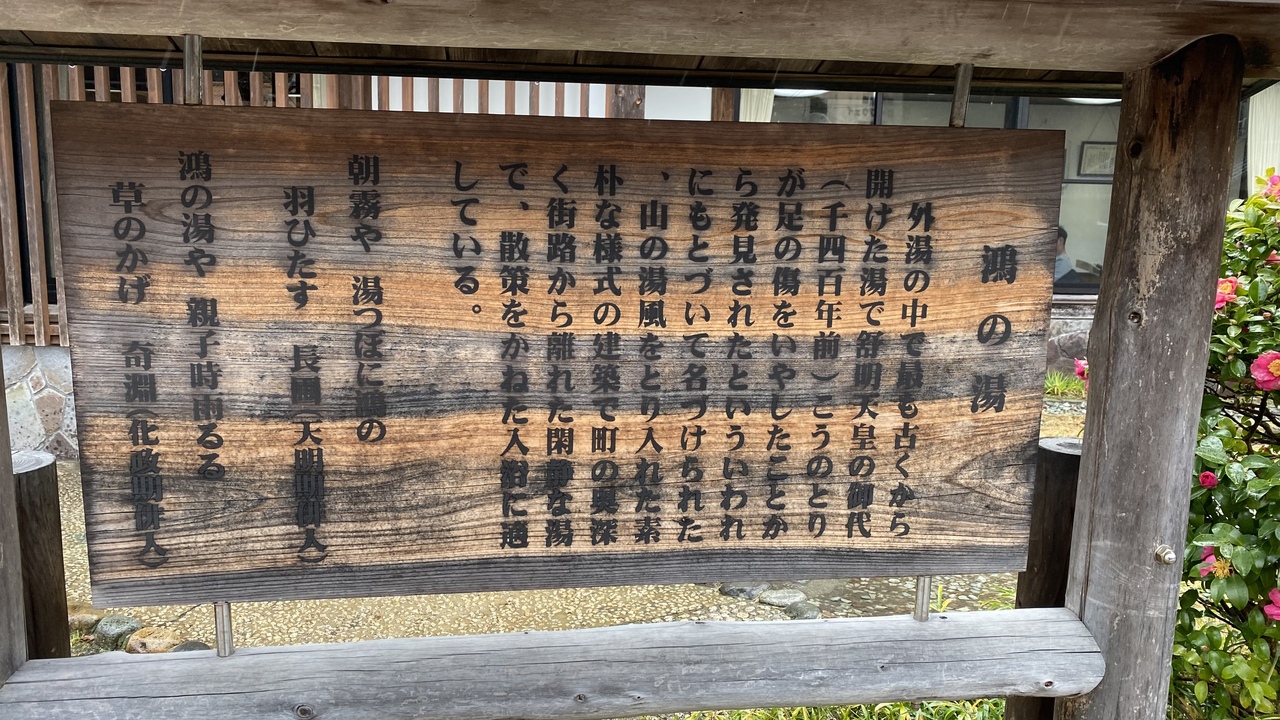 鴻の湯
外湯の中で最も古くから
開けた湯で舒明天皇の御代
（千四百年前）こうのとり
が足の傷をいやしたことか
ら発見されたといういわれ
にもとづいて名づけられた
、山の湯風をとり入れた素
朴な様式の建築で町の奥深
く街路から離れた閑静な湯
で、散策をかねた入浴に適
している。
朝霧や 湯つぼに鶴の
羽ひたす 長圃（天明期俳人）
鴻の湯や 親子時雨るる
草のかげ 奇淵（化政期俳人）